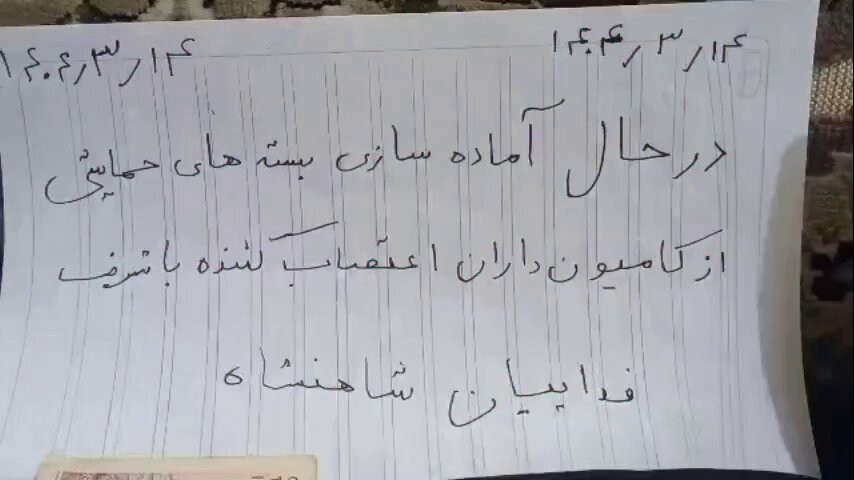 ۱۴۰۴/۳/۱۴ ۱۴۰۴/۳/۱۴
در حال آماده سازی بسته های حمایتی
از کامیون داران اعتصاب کننده با شرف
فداییان شاهنشاه